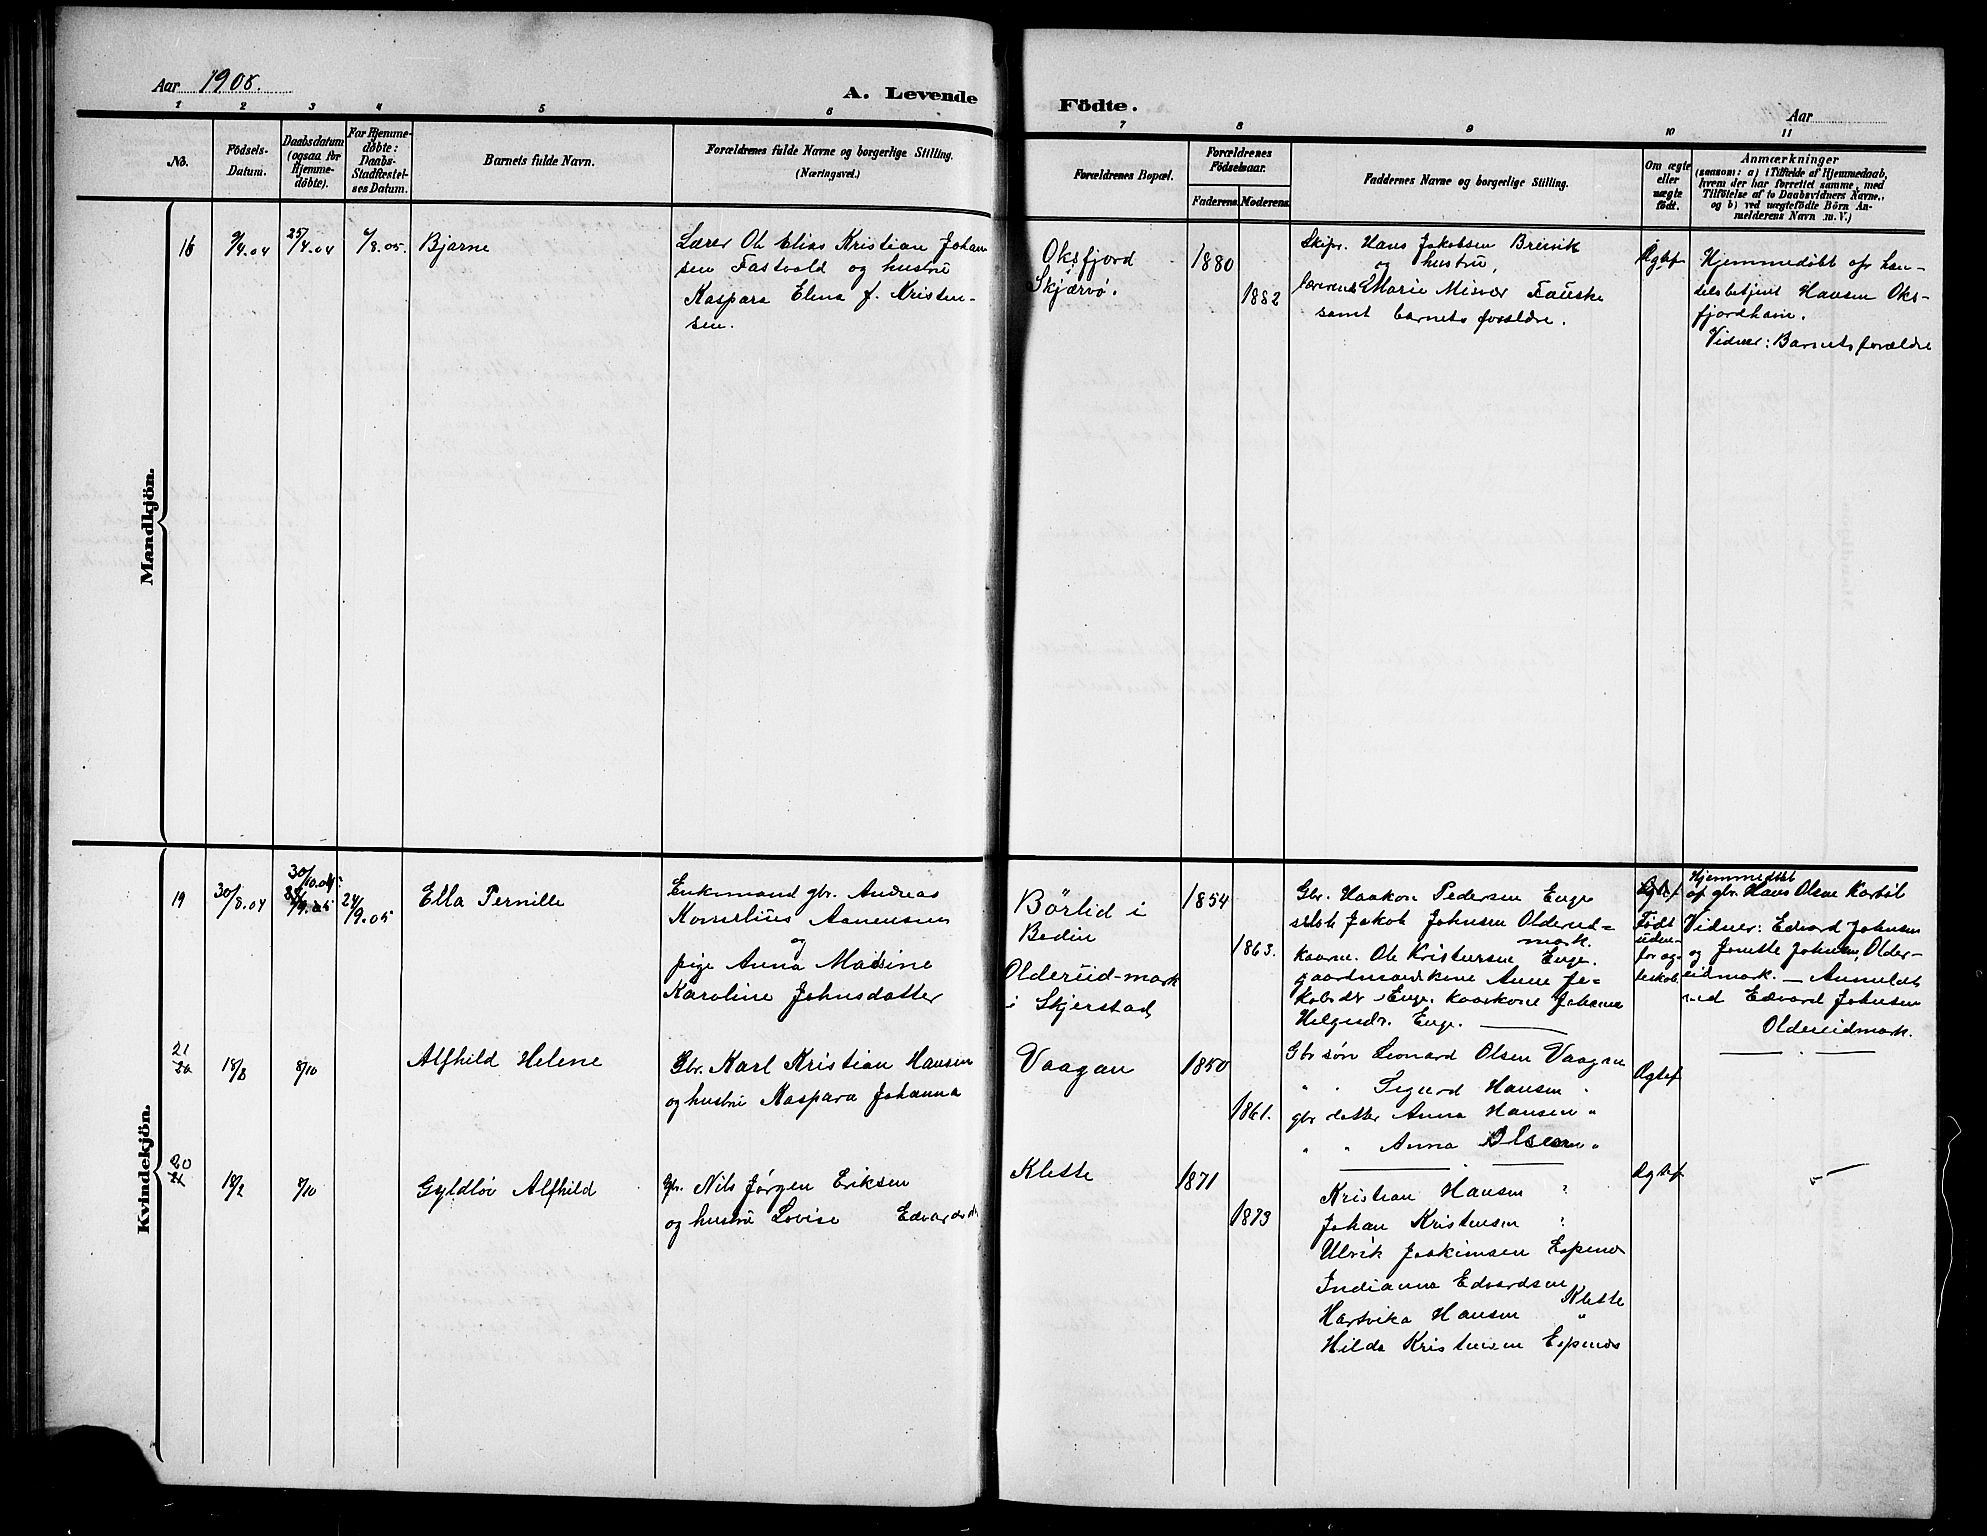 Aar 1905.
A. Levende Födte.
Aar
1 2 3 4 5 6 7 8 9 10 11
No.
Födsels-
Datum.
Daabsdatum
(ogsaa for
Hjemme-
döbte).
For Hjemme-
döbte:
Daabs-
Stadfæstel-
ses Datum.
Barnets fulde Navn.
Forældrenes fulde Navne og borgerlige Stilling.
(Næringsvei.)
Forældrenes Bopæl.
Forældrenes
Födselsaar.
Faderens.
Moderens.
Faddernes Navne og borgerlige Stilling.
Om ægte
eller
uægte
födt.
Anmærkninger
(saasom: a) i Tilfælde af Hjemmedaab,
hvem der har forrettet samme, med
Tilföielse af to Daabsvidners Navne,
og b) ved uægtefödte Börn An-
melderens Navn m. V.)
Mandkjön.
16
9/4.04
25/4.04
6/8.05.
Bjarne
Lærer Ole Elias Kristian Johan
sen Fastvold og hustru
Kaspara Elena f. Kristen-
sen.
Oksfjord
i
Skjærvö.
1880
1882
Skipr. Hans Jakobsen Breivik
og hustru,
Marie Miner Fauske
samt barnets forældre.
Ægtef
Hjemmedöbt af han-
delsbetjent Hansen Oks-
fjordhavn.
Vidner: Barnets forældre
Kvindekjön.
19
30/8.04
30/10.04.
24/9.05
24/9.05
Ella Pernille
Enkemand gbr. Andreas
Kornelius Aanensen
og
pige Anna Madsine
Karoline Johnsdatter
Börlid i
Bodin
Oldereid-mark
i Skjerstad
1854
1863.
Gbr. Haakon Pedersen Enge
selvb Jakob Johnsen Oldereid-
mark.
kaarm. Ole Kristensen Enge.
gaardmandskone Anne Ja-
kobsdr Enge. kaarkone Johanna
Helgesdr. Enge.
Ægtef
Födt
uden-
for æg-
teskab.
Hjemmedöbt
af gbr. Hans Olsen Karböl
Vidner: Edvard Johnsen
og Jensine Johnsen, Older-
eidmark. — Anmeldt
ved Edvard Johnsen
Oldereidmark.
21
20
18/8
8/10
Alfhild Helene
Gbr. Karl Kristian Hansen
og hustru Kaspara Johanna
Vaagan
1850
1861.
Gbr sön Leonard Olsen Vaagan
" " Sigurd Hansen "
gbr datter Anna Hansen "
" " Anna Olsen "
Ægtef
20
21
18/2
8/10
Gyldlöv Alfhild
Gbr. Nils Jörgen Eriksen
og hustru Lovise Edvardsdr
Klette
1871
1873
Kristian Hansen "
Johan Kristensen "
Ulrik Joakimsen Espenes
Indianna Edvardsen
Klette
Hartvika Hansen "
Hilda Kristensen Espenes
Ægtef